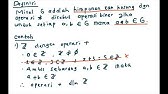 Definisi
Misal G adalah himpunan tak kosong dan
operasi * disebut operasi biner jika
untuk setiap a, b ∈ G maka a * b ∈ G
contoh
1) Z dengan operasi +
0 ∈ Z
Ambil sebarang a, b ∈ Z maka
a + b ∈ Z
∴ operasi + di Z